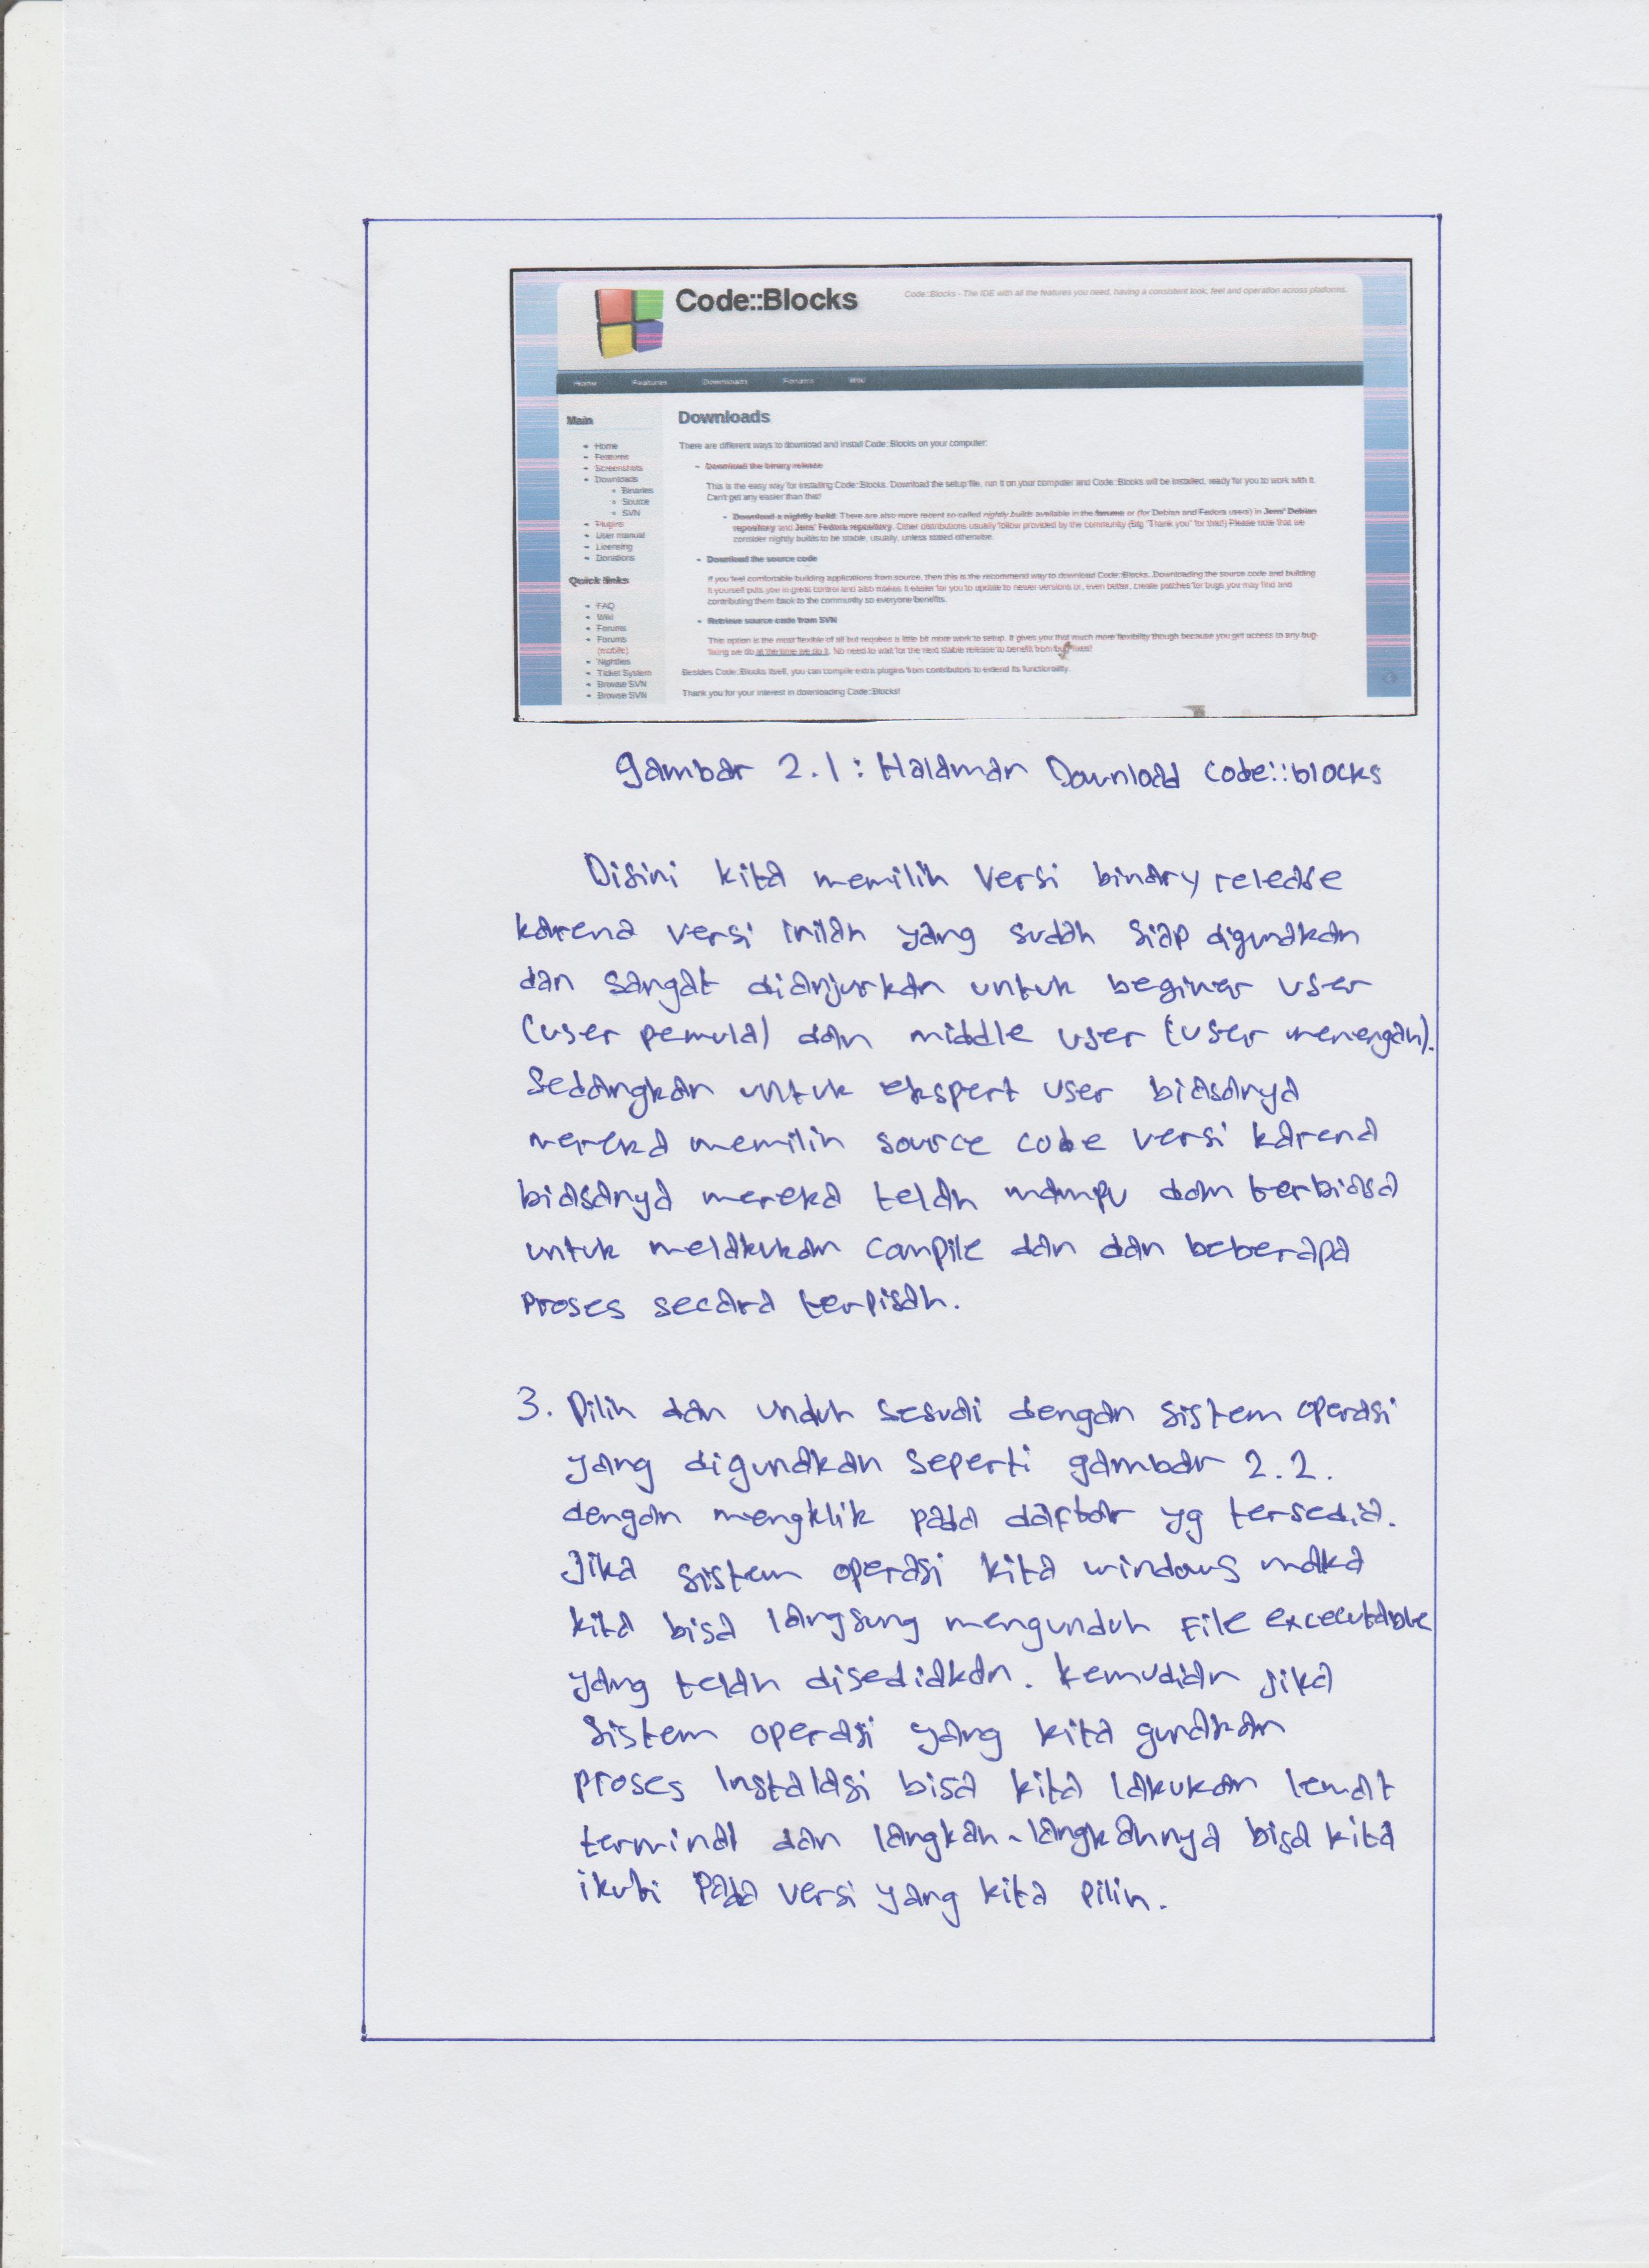 Code::Blocks
Code::Blocks - The IDE with all the features you need, having a consistent look, feel and operation across platforms.
Home Features Downloads Forums Wiki
Main
Home
Features
Screenshots
Downloads
Binaries
Source
SVN
Plugins
User manual
Licensing
Donations
Quick links
FAQ
Wiki
Forums
Forums
(mobile)
Nightlies
Ticket System
Browse SVN
Browse SVN
Downloads
There are different ways to download and install Code::Blocks on your computer:
Download the binary release
This is the easy way for installing Code::Blocks. Download the setup file, run it on your computer and Code::Blocks will be installed, ready for you to work with it.
Can't get any easier than this!
Download a nightly build: There are also more recent so-called nightly builds available in the forums or (for Debian and Fedora users) in Jens' Debian
repository and Jens' Fedora repository. Other distributions usually follow provided by the community (Big "Thank you" for that!) Please note that we
consider nightly builds to be stable, usually, unless stated otherwise.
Download the source code
If you feel comfortable building applications from source, then this is the recommend way to download Code::Blocks. Downloading the source code and building
it yourself puts you in great control and also makes it easier for you to update to newer versions or, even better, create patches for bugs you may find and
contributing them back to the community so everyone benefits.
Retrieve source code from SVN
This option is the most flexible of all but requires a little bit more work to setup. It gives you that much more flexibility though because you get access to any bug-
fixing we do at the time we do it. No need to wait for the next stable release to benefit from bug-fixes!
Besides Code::Blocks itself, you can compile extra plugins from contributors to extend its functionality.
Thank you for your interest in downloading Code::Blocks!
gambar 2.1 : Halaman Download code::blocks
Disini kita memilih versi binary release
karena versi inilah yang sudah siap digunakan
dan sangat dianjurkan untuk beginer user
(user pemula) dan middle user (user menengah).
Sedangkan untuk ekspert user biasanya
mereka memilih source code versi karena
biasanya mereka telah mampu dan terbiasa
untuk melakukan compile dan dan beberapa
proses secara terpisah.
3. Pilih dan unduh sesuai dengan sistem operasi
yang digunakan seperti gambar 2.2.
dengan mengklik pada daftar yg tersedia.
Jika sistem operasi kita windows maka
kita bisa langsung mengunduh File excecutable
yang telah disediakan. kemudian jika
sistem operasi yang kita gunakan
proses Instalasi bisa kita lakukan lewat
terminal dan langkah-langkahnya bisa kita
ikuti pada versi yang kita pilih.